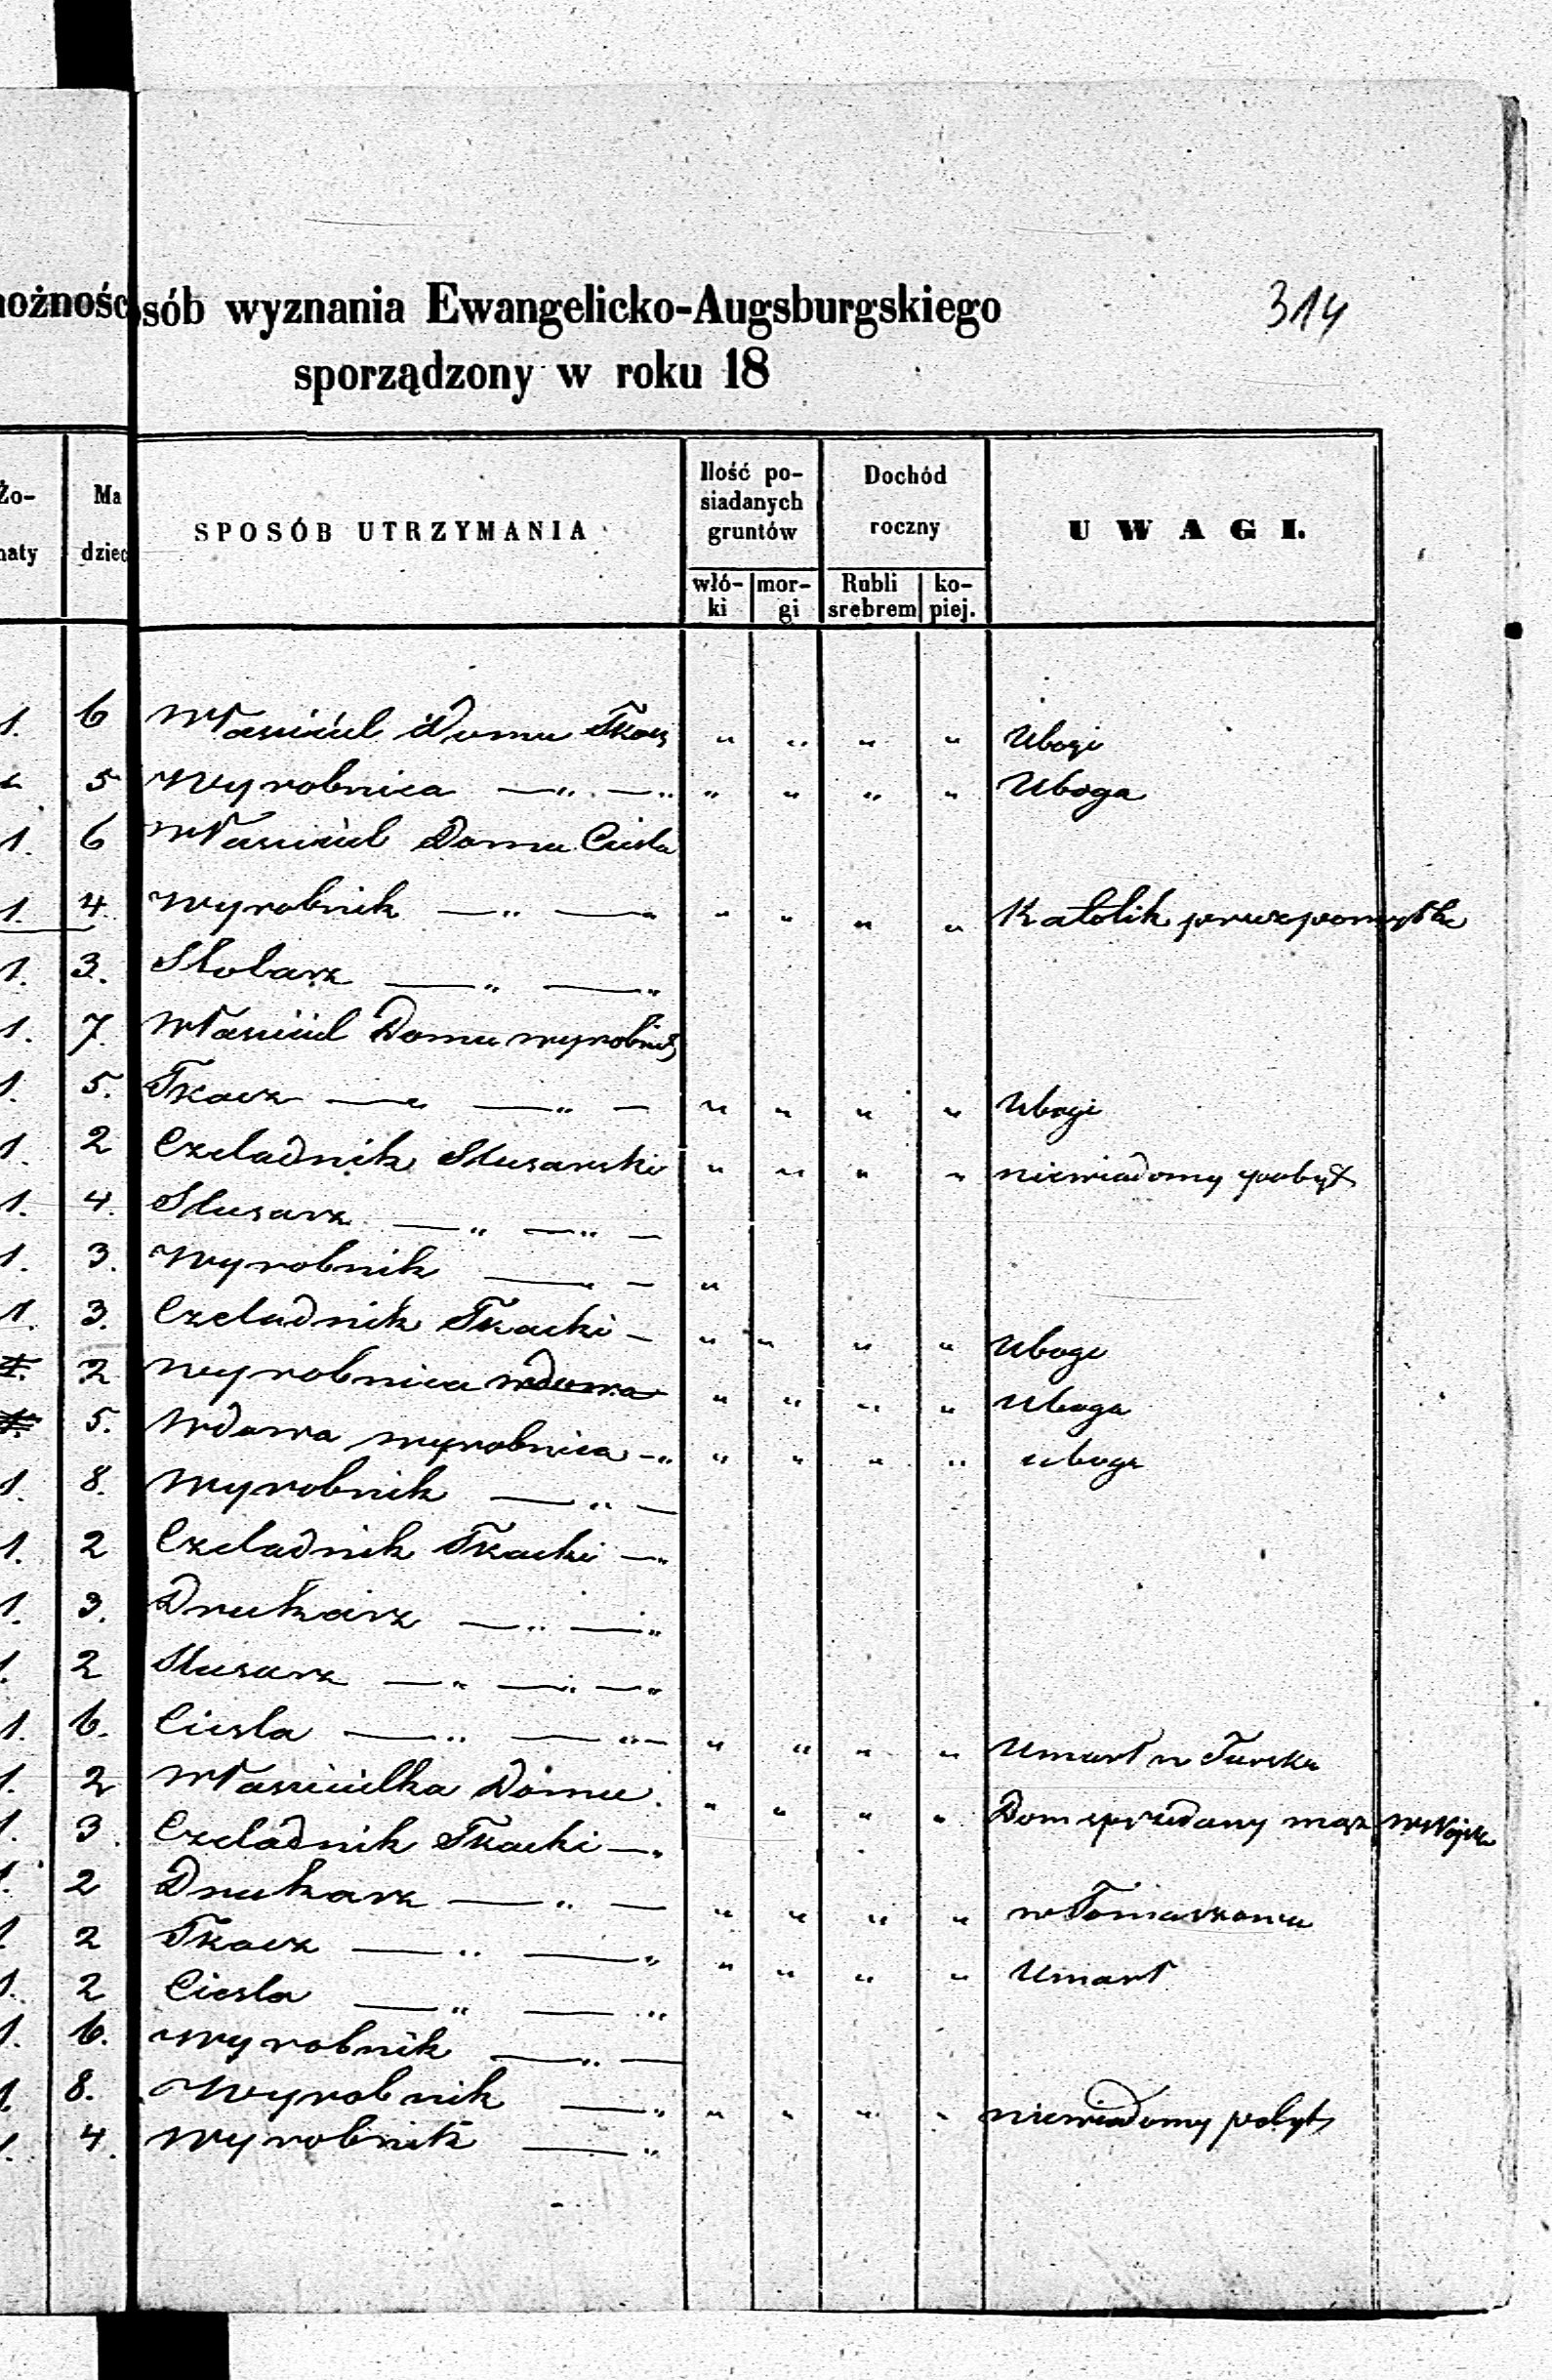 nożnośc sób wyznania Ewangelicko-Augsburgskiego 314
sporządzony w roku 18
Żo- Ma SPOSÓB UTRZYMANIA Ilość po- Dochód UWAGI.
siadanych
naty dziec gruntów roczny
włó- mor- Rubli ko-
ki gi srebrem piej.
1. 6 Właściciel Domu Tkacz " " " " Ubogi
" 5 Wyrobnica —"—" " " " " Uboga
1. 6 Właściciel Domu Ciesla
1. 4. Wyrobnik —"—" " " " " Katolik przez pomyłkę
1. 3. Stolarz —"—"
1. 7. Właściciel Domu wyrobnik
1. 5. Tkacz —"—"— " " " " Ubogi
1. 2 Czeladnik Slusarski " " " " niewiadomy pobyt
1. 4. Slusarz —"—"—
1. 3. Wyrobnik —"— "
1. 3. Czeladnik Tkacki — " " " " Ubogi
1. 2 wyrobnica wdowa " " " " Uboga
1. 5. Wdowa wyrobnica —" " " " " uboga
1. 8. Wyrobnik —"—
1. 2 Czeladnik Tkacki —"
1. 3. Drukarz —"—"
1. 2 Slusarz —"—"—"
1. 6. Ciesla —"—"— " " " " Umarł w Tursku
1. 2 Właścicielka Domu. " " " " Dom sprzedany mąż w Wojsku
1. 3. Czeladnik Tkacki —"
1. 2 Drukarz —"— " " " " w Tomaszowie
1. 2 Tkacz —"—" " " " " Umarł
1. 2 Ciesla —"—"
1. 6. Wyrobnik —"—
1. 8. Wyrobnik —" " " " " niewiadomy pobyt
1. 4. Wyrobnik —"